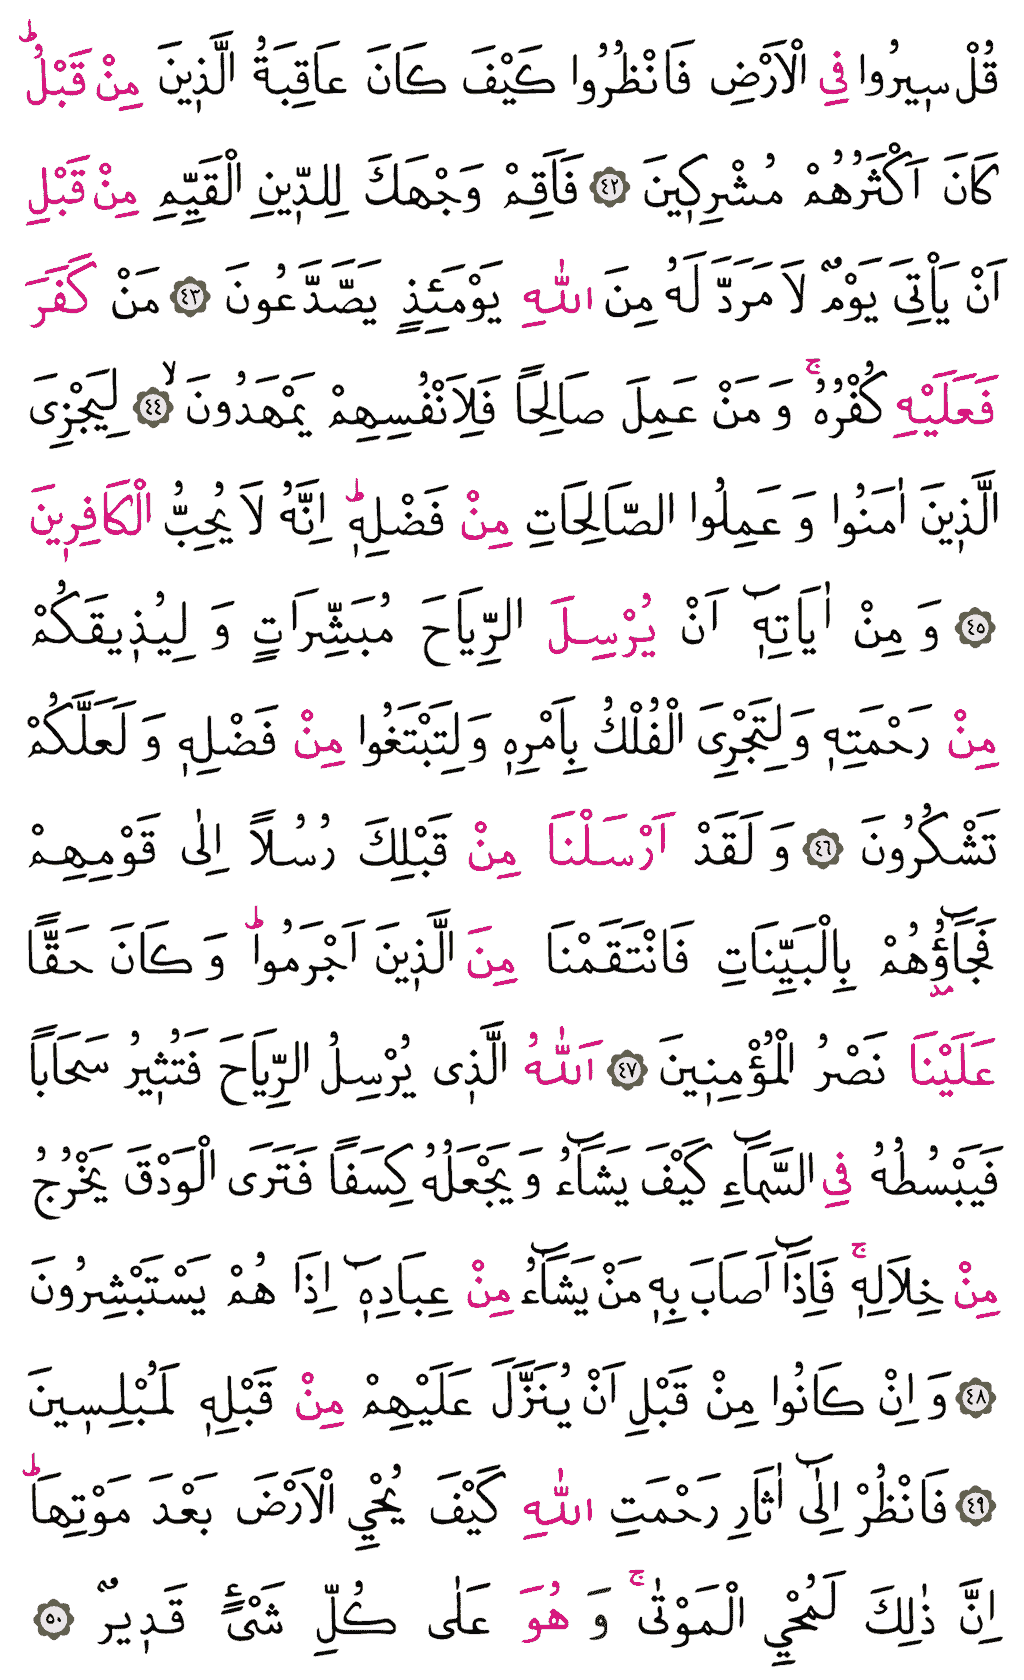 قُلْ سٖيرُوا فِي الْاَرْضِ فَانْظُرُوا كَيْفَ كَانَ عَاقِبَةُ الَّذٖينَ مِنْ قَبْلُؕ
كَانَ اَكْثَرُهُمْ مُشْرِكٖينَ ﴿٤٢﴾ فَاَقِمْ وَجْهَكَ لِلدّٖينِ الْقَيِّمِ مِنْ قَبْلِ
اَنْ يَأْتِيَ يَوْمٌ لَا مَرَدَّ لَهُ مِنَ اللّٰهِ يَوْمَئِذٍ يَصَّدَّعُونَ ﴿٤٣﴾ مَنْ كَفَرَ
فَعَلَيْهِ كُفْرُهُۚ وَ مَنْ عَمِلَ صَالِحًا فَلِاَنْفُسِهِمْ يَمْهَدُونَۙ ﴿٤٤﴾ لِيَجْزِيَ
الَّذٖينَ اٰمَنُوا وَ عَمِلُوا الصَّالِحَاتِ مِنْ فَضْلِهٖؕ اِنَّهُ لَا يُحِبُّ الْكَافِرٖينَ
﴿٤٥﴾ وَ مِنْ اٰيَاتِهٖٓ اَنْ يُرْسِلَ الرِّيَاحَ مُبَشِّرَاتٍ وَ لِيُذٖيقَكُمْ
مِنْ رَحْمَتِهٖ وَ لِتَجْرِيَ الْفُلْكُ بِاَمْرِهٖ وَ لِتَبْتَغُوا مِنْ فَضْلِهٖ وَ لَعَلَّكُمْ
تَشْكُرُونَ ﴿٤٦﴾ وَ لَقَدْ اَرْسَلْنَا مِنْ قَبْلِكَ رُسُلًا اِلٰى قَوْمِهِمْ
فَجَٓاؤُ۫هُمْ بِالْبَيِّنَاتِ فَانْتَقَمْنَا مِنَ الَّذٖينَ اَجْرَمُواؕ وَ كَانَ حَقًّا
عَلَيْنَا نَصْرُ الْمُؤْمِنٖينَ ﴿٤٧﴾ اَللّٰهُ الَّذٖى يُرْسِلُ الرِّيَاحَ فَتُثٖيرُ سَحَابًا
فَيَبْسُطُهُ فِي السَّمَٓاءِ كَيْفَ يَشَٓاءُ وَ يَجْعَلُهُ كِسَفًا فَتَرَى الْوَدْقَ يَخْرُجُ
مِنْ خِلَالِهٖۚ فَاِذَٓا اَصَابَ بِهٖ مَنْ يَشَٓاءُ مِنْ عِبَادِهٖٓ اِذَا هُمْ يَسْتَبْشِرُونَ
﴿٤٨﴾ وَ اِنْ كَانُوا مِنْ قَبْلِ اَنْ يُنَزَّلَ عَلَيْهِمْ مِنْ قَبْلِهٖ لَمُبْلِسٖينَ
﴿٤٩﴾ فَانْظُرْ اِلٰٓى اٰثَارِ رَحْمَتِ اللّٰهِ كَيْفَ يُحْيِ الْاَرْضَ بَعْدَ مَوْتِهَاؕ
اِنَّ ذٰلِكَ لَمُحْيِ الْمَوْتٰىۚ وَ هُوَ عَلٰى كُلِّ شَيْءٍ قَدٖيرٌ ﴿٥٠﴾